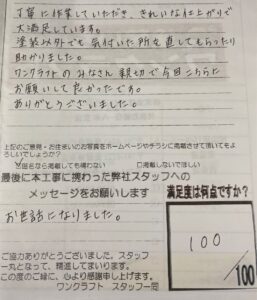 丁寧に作業していただき、きれいな仕上がりで
大満足しています。
塗装以外でも気付いた所を直してもらったり
助かりました。
ワンクラフトのみなさん親切で今回こちらに
お願いして良かったです。
ありがとうございました。
上記のご意見・お住まいのお写真をホームページやチラシに掲載させて頂いてもよ
ろしいでしょうか?
☑匿名なら掲載しても構わない □掲載しないでほしい
最後に本工事に携わった弊社スタッフへの
メッセージをお願いします
お世話になりました。
満足度は何点ですか?
100
/100
ご協力ありがとうございました。スタッフ
一丸となって、精進してまいります。
この度のご縁に、心より感謝申し上げます。
ワンクラフト スタッフ一同